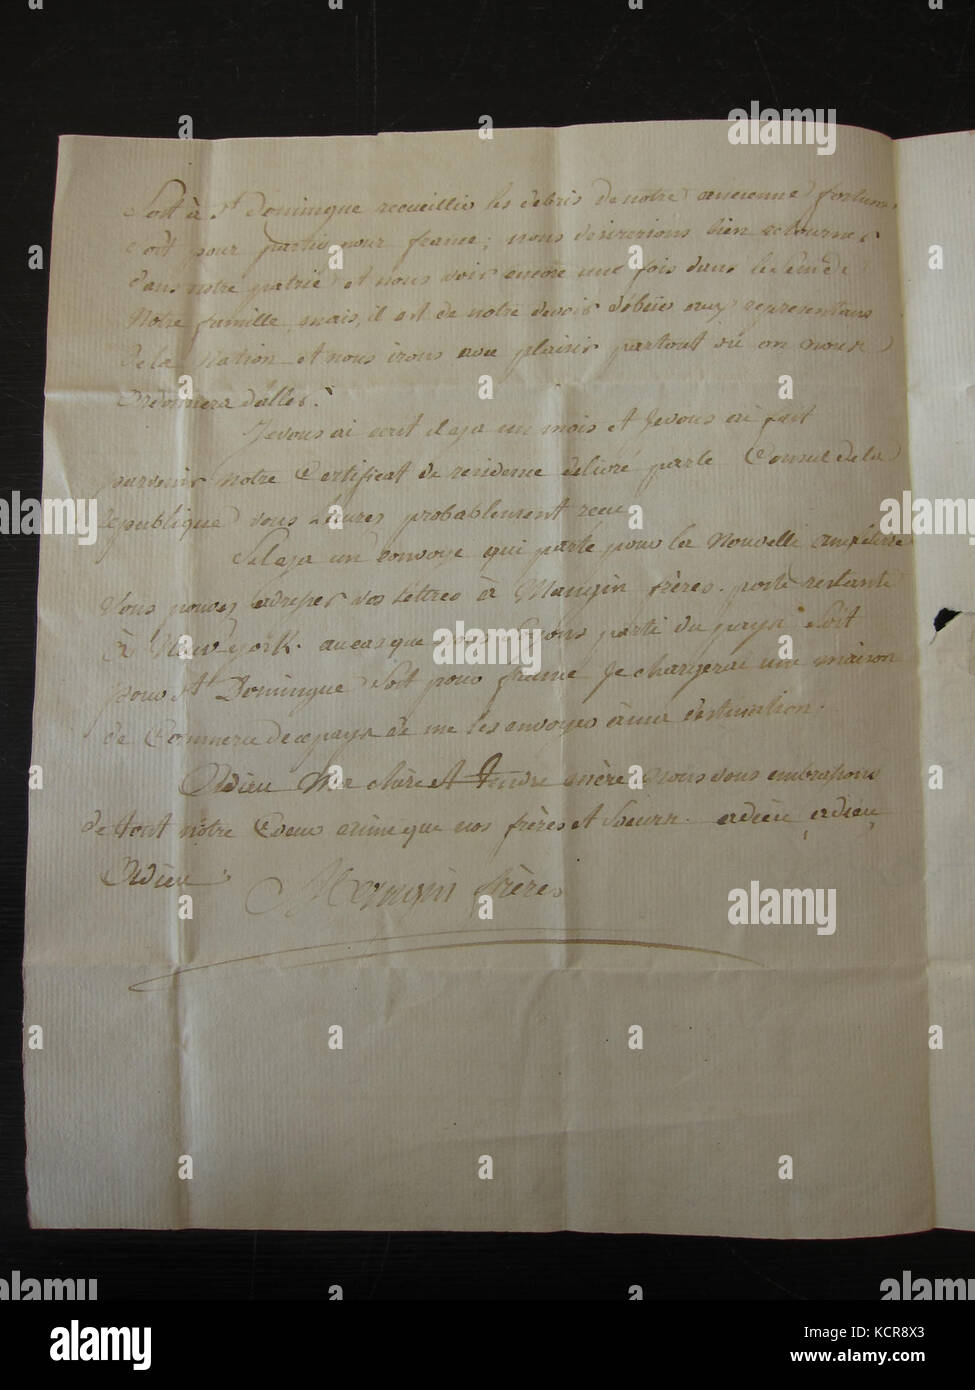 Soit à St Domingue recueillir les debris de notre ancienne fortune
soit pour partir pour france; nous desirerions bien retourner
dans notre patrie et nous voir encore une fois dans le sein de
Notre famille, mais, il est de notre devoir d'obéir aux representans
de la Nation et nous irons avec plaisir partout où on nous
Ordonnera d'aller.
Je vous ai ecrit il a ja un mois et Je vous ai fait
parvenir notre Certificat de residence delivré par le Consul de la
republique vous l'aures probablement recu
un convoye qui parte pour la Nouvelle
Vous pouves adresser vos lettres à Mangin frères. poste restante
à Neuw-york. au cas que nous soyons parti du pays Soit
pour St Domingue Soit pour france Je chargerai une maison
de Commerce de ce pays de me les envoyer à ma destination.
Adieu Ma chère et tendre mère nous vous embrassons
de tout notre Coeur ainsi que nos frères et Soeurs. adieu adieu
Adieu
Mangin frères
alamy
Image ID: KCR8X3
www.alamy.com